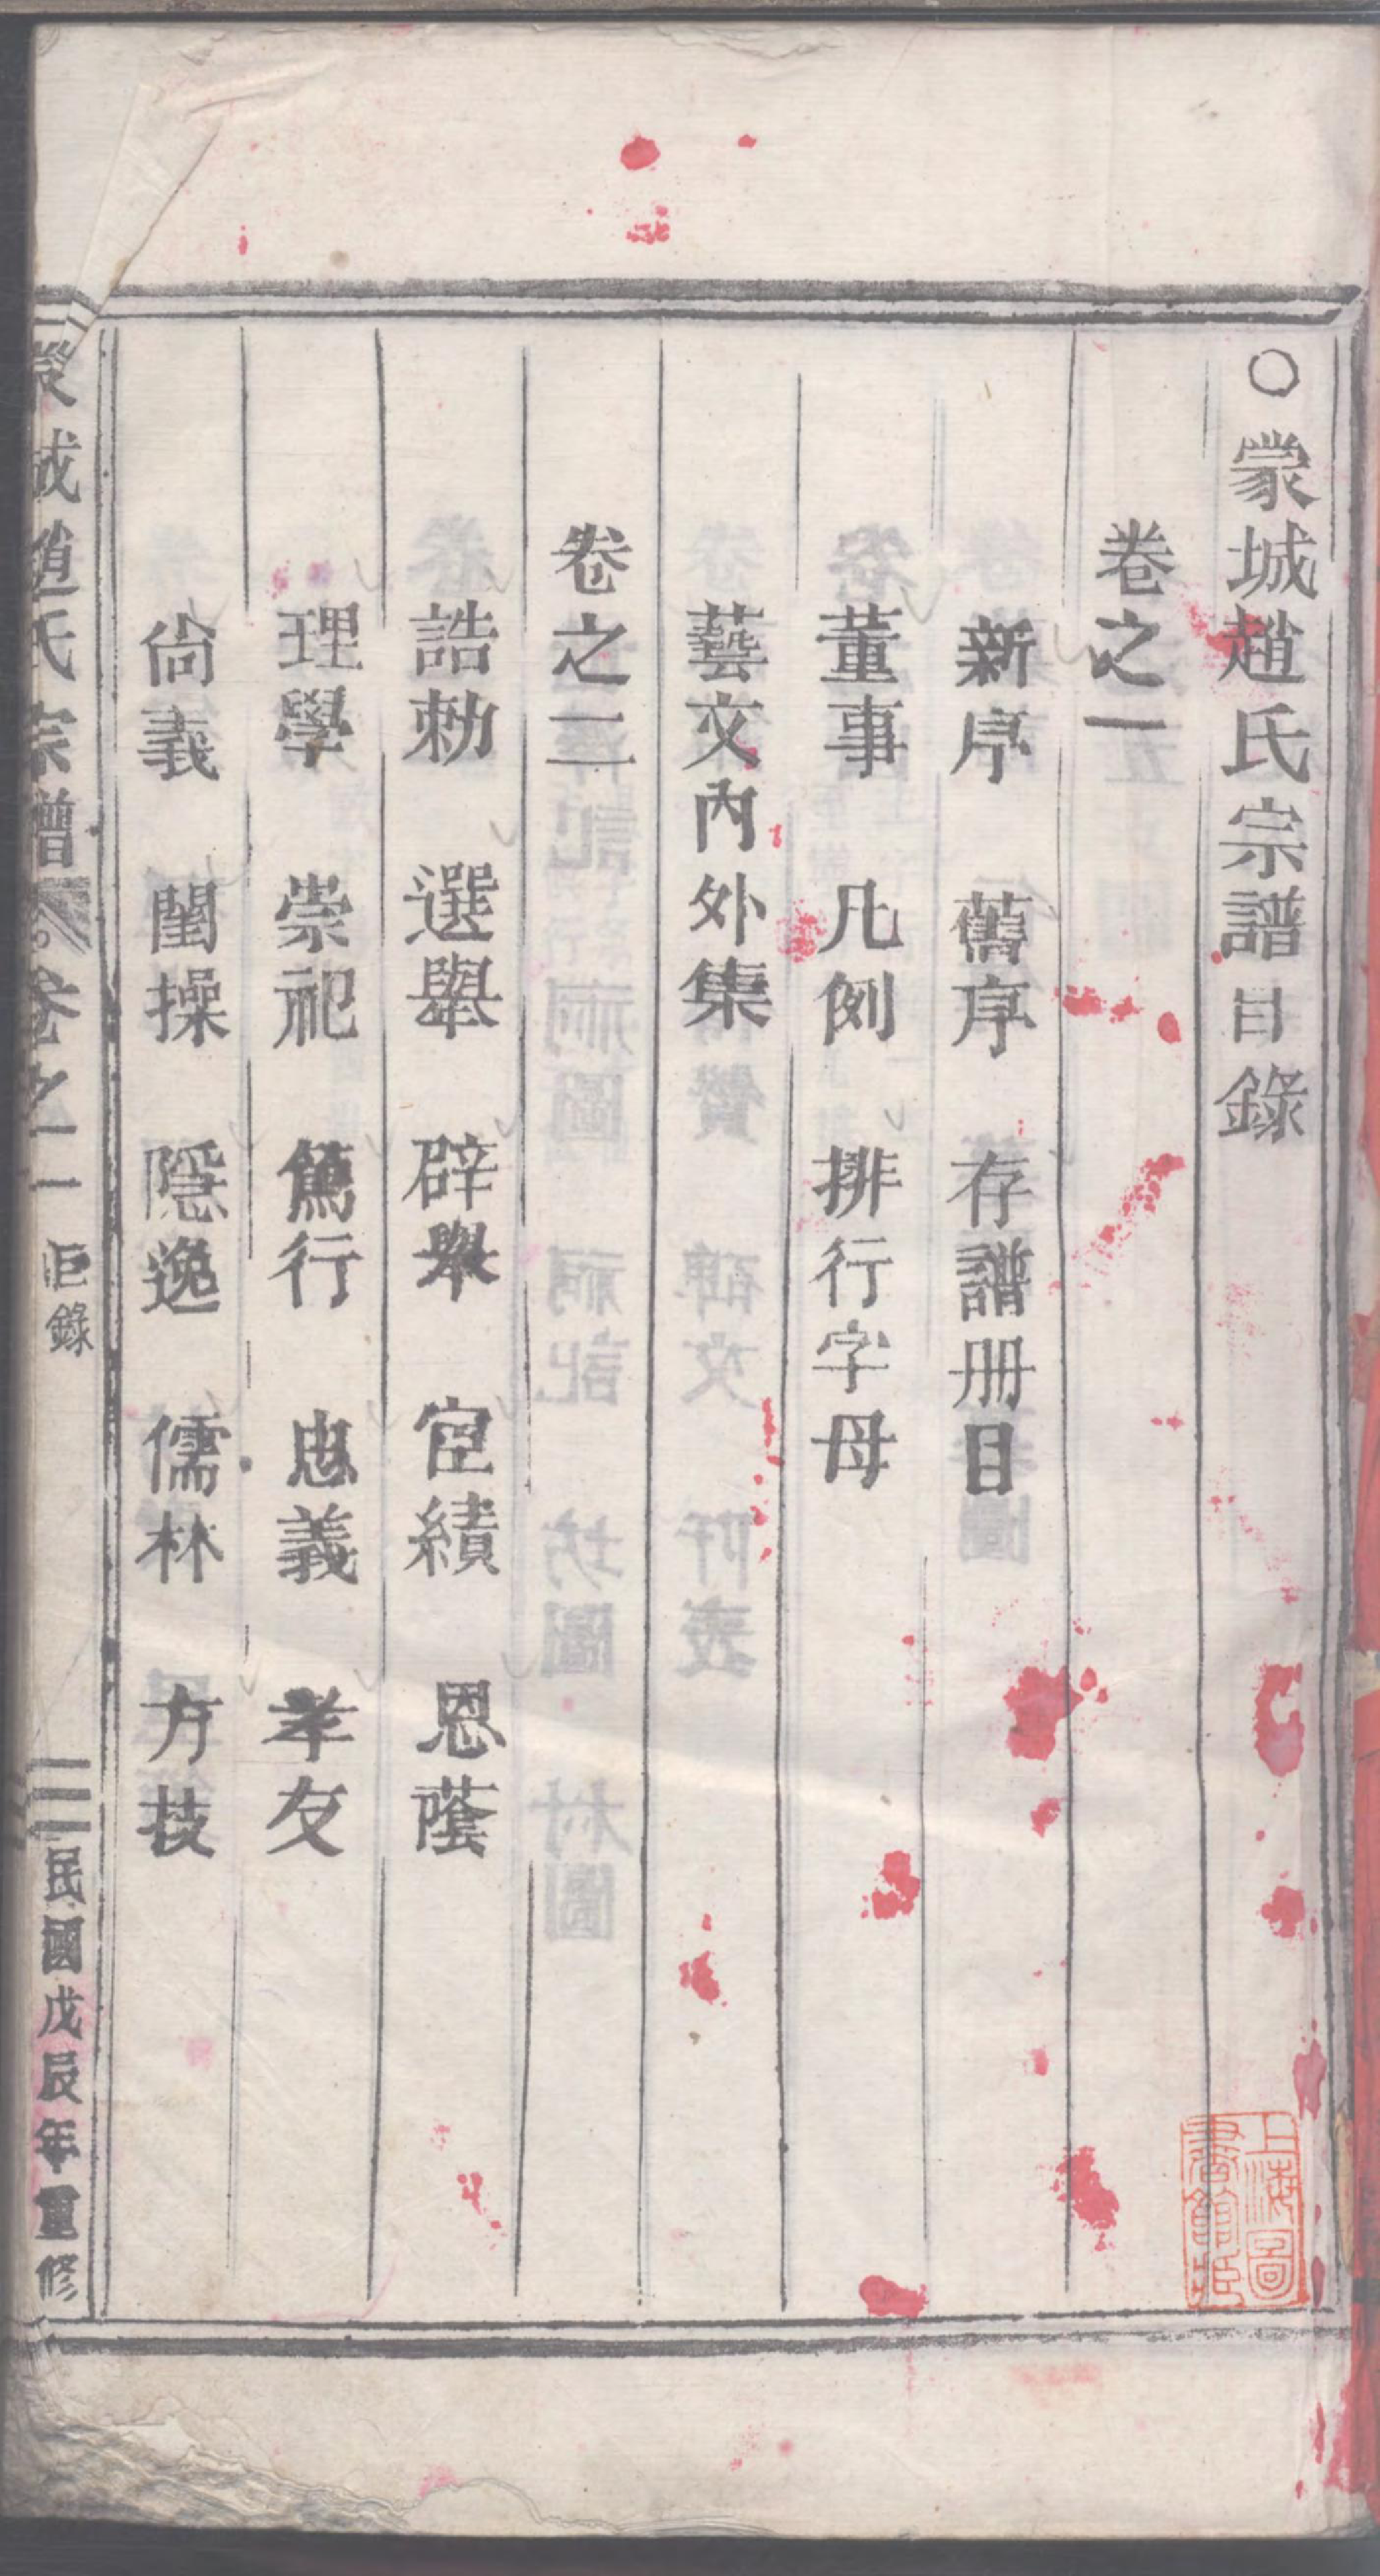 ○蒙城趙氏宗譜目錄
卷之一
新序 舊序 存譜册目
董事 凡例 排行字母
藝文內外集
卷之二
誥勅 選舉 辟舉 宦績 恩蔭
理學 崇祀 篤行 忠義 孝友
尙義 閨操 隱逸 儒林 方技
蒙城趙氏宗譜 卷之一 目錄 民國戊辰年重修
上海圖書館藏